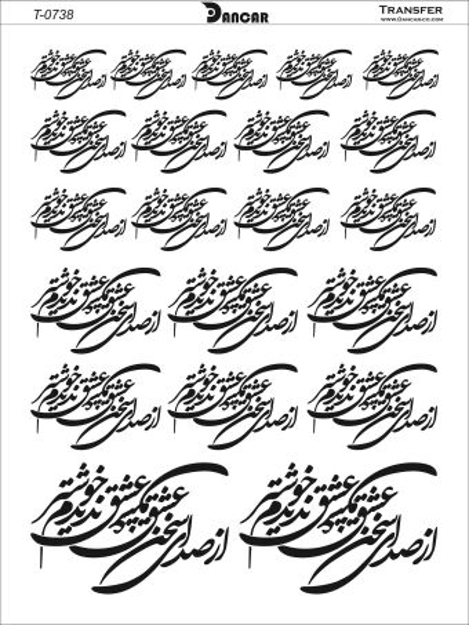 T-0738
DANCAR
TRANSFER
www.Dancarco.com
از صدای سخن عشق ندیدم خوشتر از صدای سخن عشق ندیدم خوشتر از صدای سخن عشق ندیدم خوشتر از صدای سخن عشق ندیدم خوشتر از صدای سخن عشق ندیدم خوشتر
از صدای سخن عشق ندیدم خوشتر از صدای سخن عشق ندیدم خوشتر از صدای سخن عشق ندیدم خوشتر از صدای سخن عشق ندیدم خوشتر
از صدای سخن عشق ندیدم خوشتر از صدای سخن عشق ندیدم خوشتر از صدای سخن عشق ندیدم خوشتر از صدای سخن عشق ندیدم خوشتر
از صدای سخن عشق ندیدم خوشتر از صدای سخن عشق ندیدم خوشتر از صدای سخن عشق ندیدم خوشتر
از صدای سخن عشق ندیدم خوشتر از صدای سخن عشق ندیدم خوشتر از صدای سخن عشق ندیدم خوشتر
از صدای سخن عشق ندیدم خوشتر از صدای سخن عشق ندیدم خوشتر